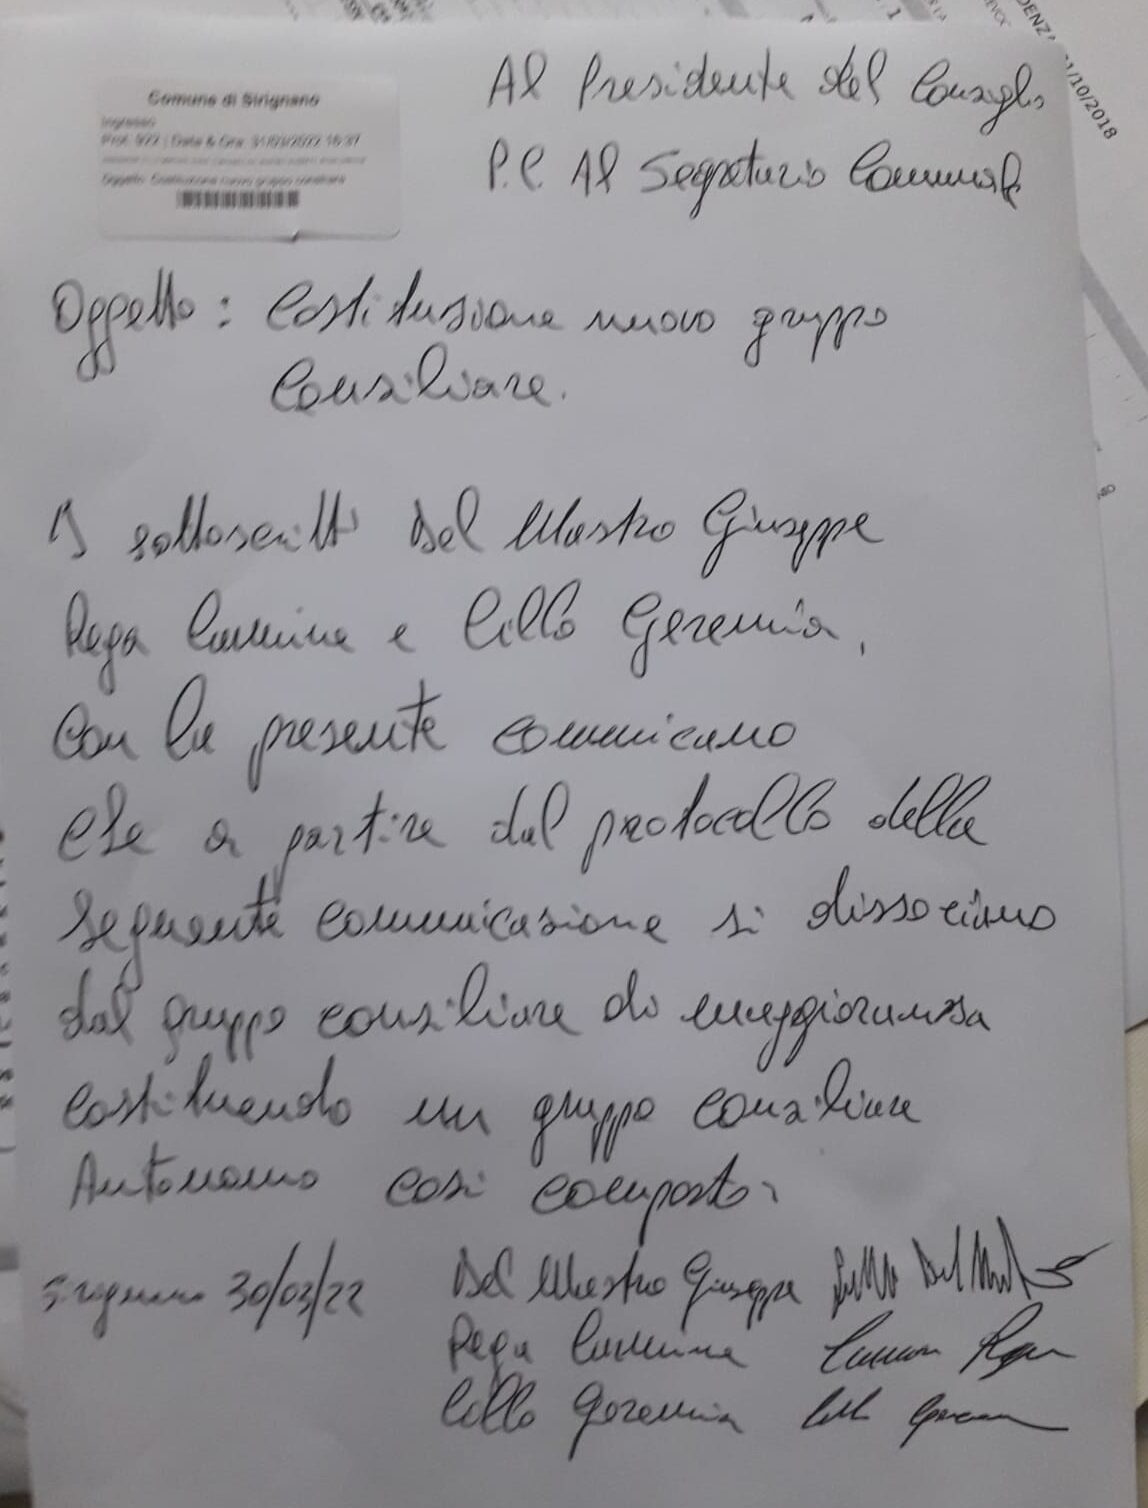 Comune di Sirignano
Ingresso
Prot. 922 | Data & Ora 31/03/2022 16:37
Oggetto: Costituzione nuovo gruppo consiliare
Al Presidente del Consiglio
P.C. Al Segretario Comunale
Oggetto: Costituzione nuovo gruppo
Consiliare.
I sottoscritti Del Mastro Giuseppe
Rega Carmine e Colło Geremia,
con la presente comunicano
che a partire dal protocollo della
seguente comunicazione si dissociano
dal gruppo consiliare di maggioranza
costituendo un gruppo consiliare
Autonomo così composto:
Sirignano 30/03/22
Del Mastro Giuseppe
Rega Carmine
Geremia
1/10/2018